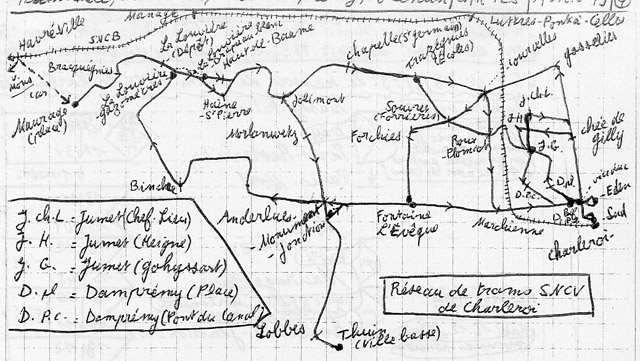 Manage
Luttres-Pont-à-Celles
Havré-Ville
SNCB
La Louvière
(Dépôt)
La Louvière
(Drapeau)
Haut-de-Baume
Chapelle (St germain)
Trazegnies
(Ecoles)
Courcelles
gosselies
Mons
car
Bracquegnies
La Louvière
gazomètres
Maurage
(Place)
Haine-
St-Pierre
Jolimont
Morlanwelz
Souvret
(Forrières)
Forchies
Roux-
Plomcot
J.ch.L
J.H.
J.G.
chée de
gilly
Binche
Anderlues-
-Monument
-Jonction
Fontaine
L'Evêque
Marchienne
D.P.C.
D.Pl
viaduc
Eden
Sud
charleroi
J. ch. L = Jumet (Chef. Lieu)
J. H. = Jumet (Heigne)
J. G. = Jumet (gohyssart)
D. Pl = Dampremy (Place)
D. P.C. = Dampremy (Pont du Canal)
Réseau de trams SNCV
de Charleroi
Lobbes
Thuin
(Ville basse)